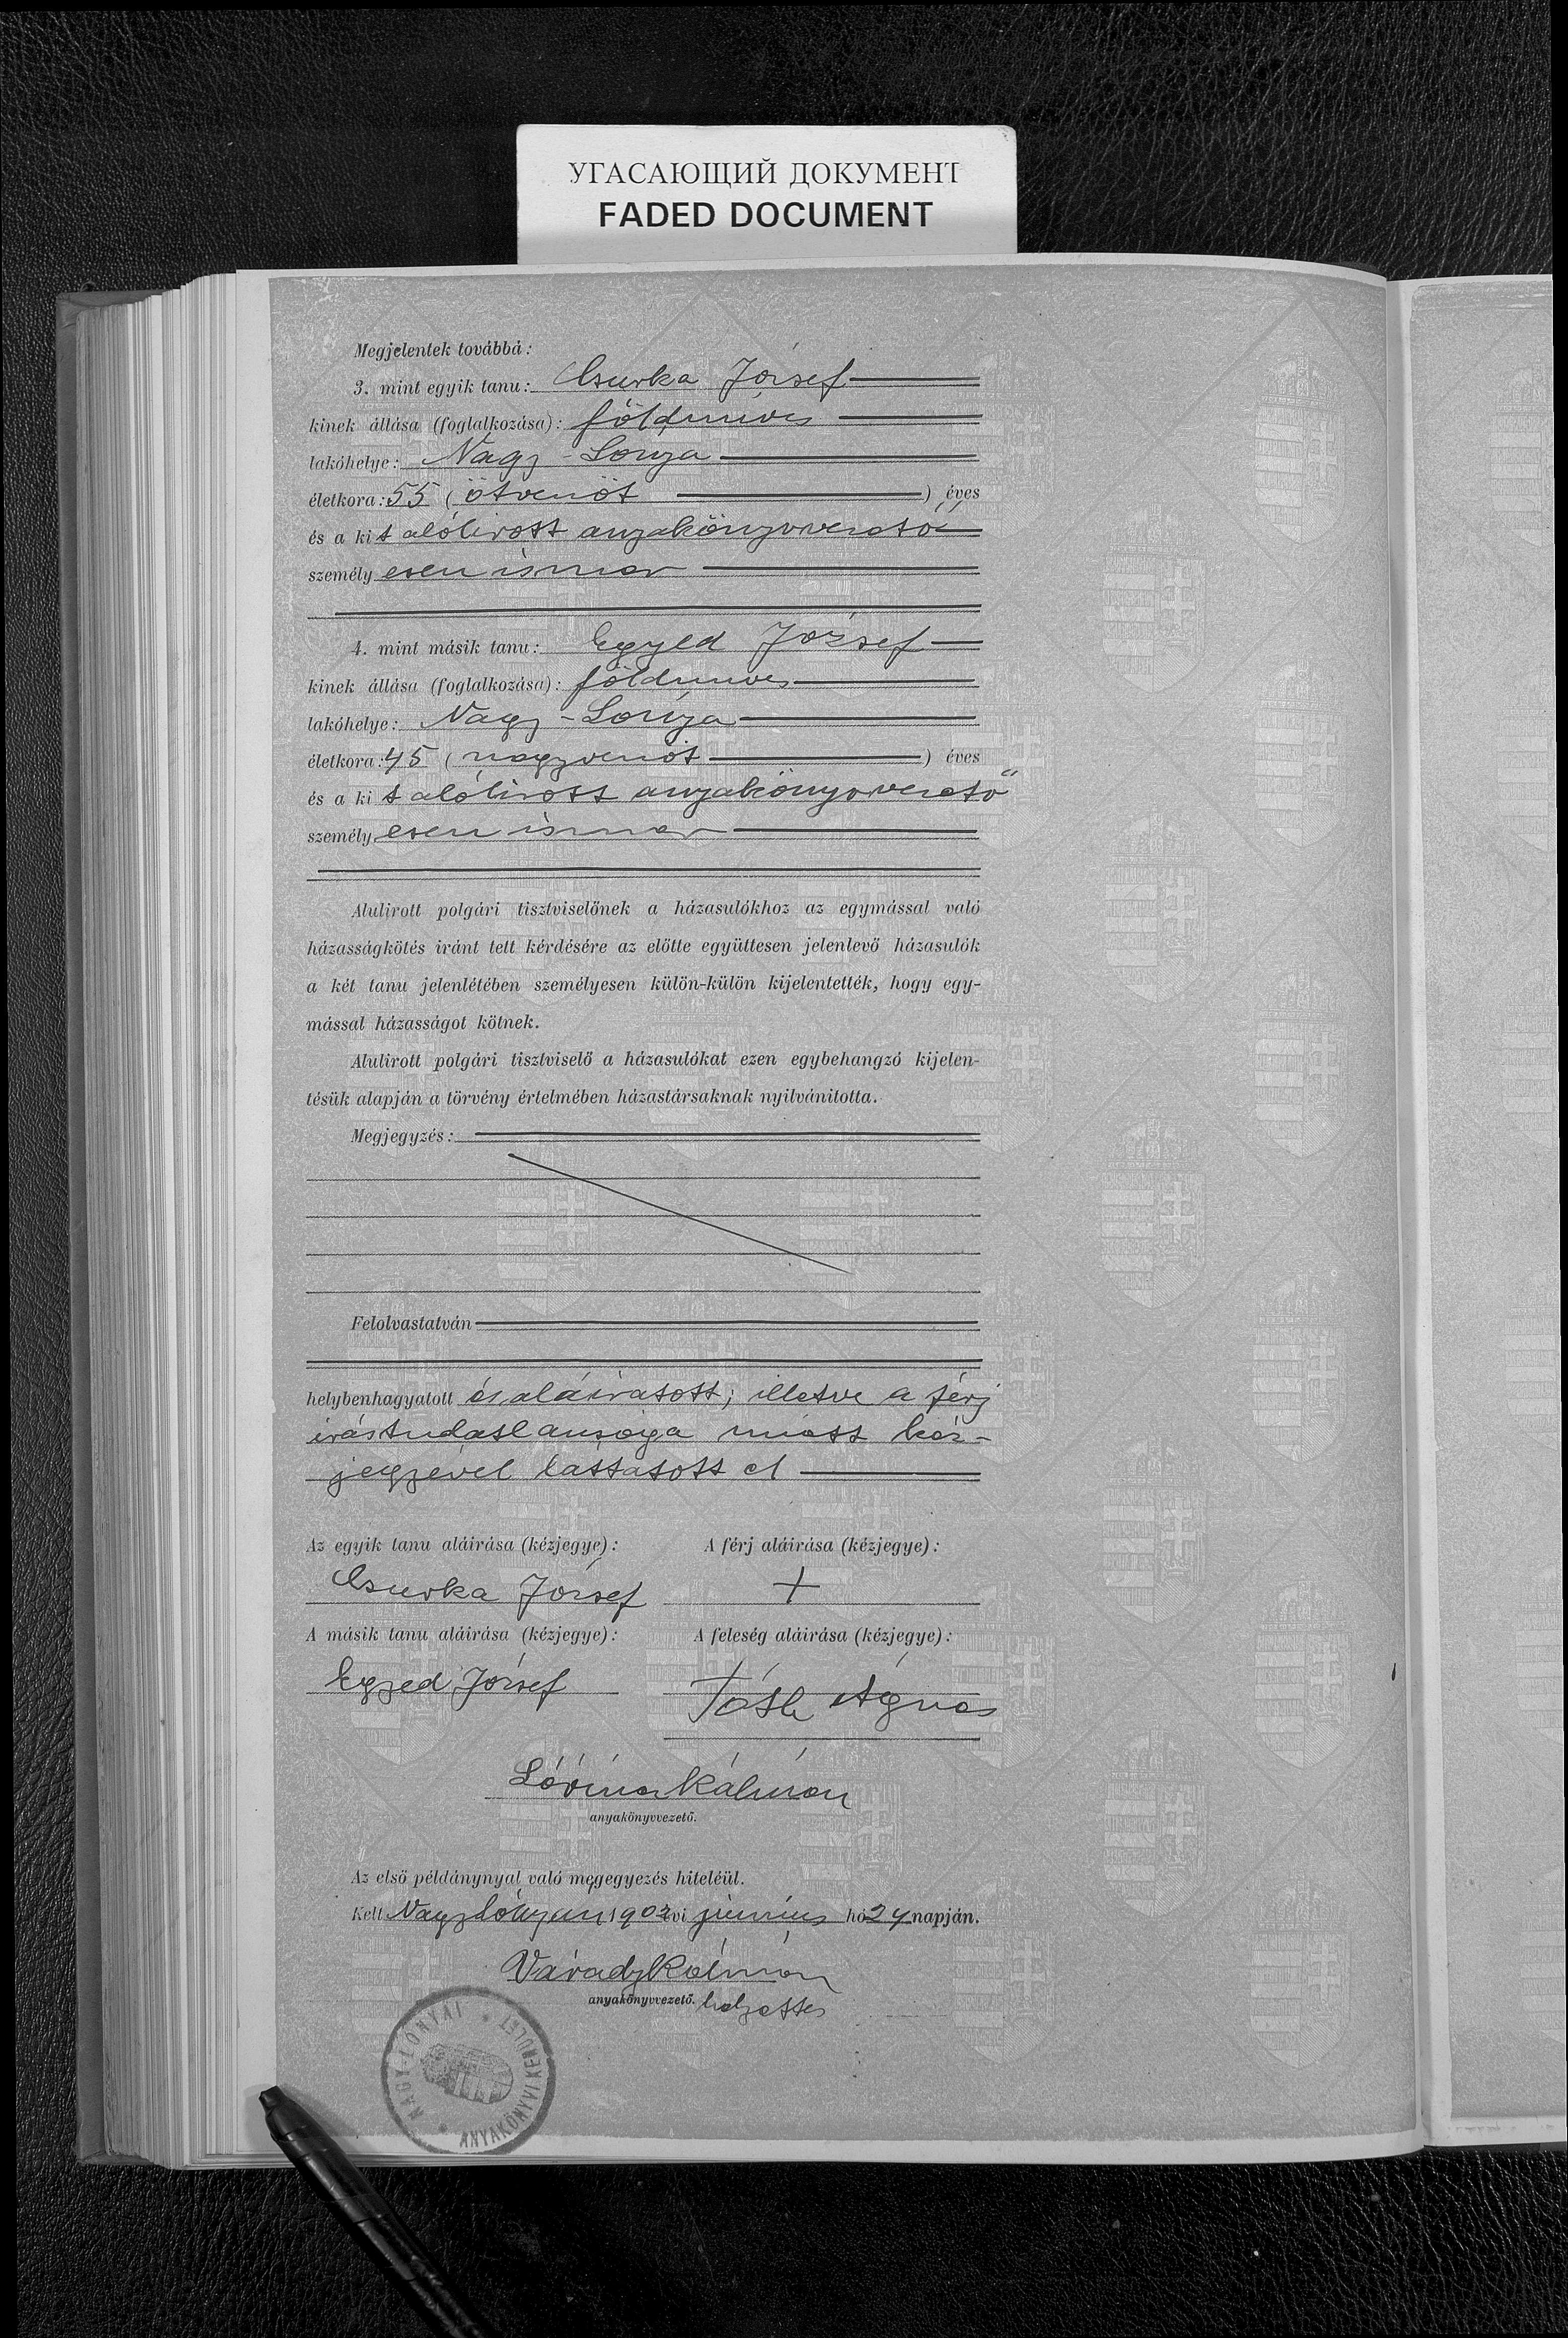 УГАСАЮЩИЙ ДОКУМЕНТ
FADED DOCUMENT
Megjelentek továbbá:
3. mint egyik tanu: Csurka József
kinek állása (foglalkozása): földmives
lakóhelye: Nagy-Lónya
életkora: 55 (ötvenöt) éves
és a kit alólirott anyakönyvvezető
személyesen ismer
4. mint másik tanu: Egyed József
kinek állása (foglalkozása): földmives
lakóhelye: Nagy-Lónya
életkora: 45 (negyvenöt) éves
és a kit alólirott anyakönyvvezető
személyesen ismer
Alulirott polgári tisztviselőnek a házasulókhoz az egymással való
házasságkötés iránt tett kérdésére az előtte együttesen jelenlevő házasulók
a két tanu jelenlétében személyesen külön-külön kijelentették, hogy egy-
mással házasságot kötnek.
Alulirott polgári tisztviselő a házasulókat ezen egybehangzó kijelen-
tésük alapján a törvény értelmében házastársaknak nyilvánitotta.
Megjegyzés:
Felolvastatván
helybenhagyatott és aláiratott; illetve a férj
irástudatlansága miatt kéz-
jegyével láttatott el
Az egyik tanu aláirása (kézjegye): A férj aláirása (kézjegye):
Csurka József +
A másik tanu aláirása (kézjegye): A feleség aláirása (kézjegye):
Egyed József Tóth Ágnes
Kálmán
anyakönyvvezető.
Az első példánynyal való megegyezés hiteléül.
Kelt Nagylónyán 1902 évi junius hó 24 napján.
Várady Kálmán
anyakönyvvezető. helyettes
NAGY-LÓNYAI ANYAKÖNYVI KERÜLET